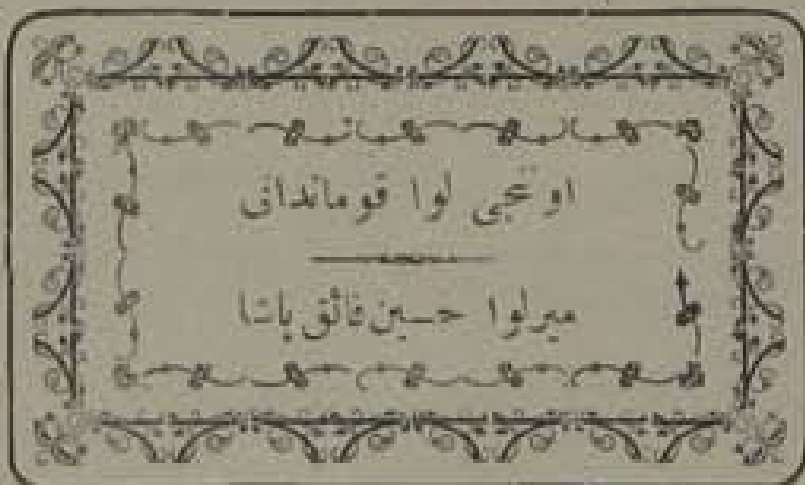 اوننجی لوا قوماندانی
میرلوا حسین فائق پاشا